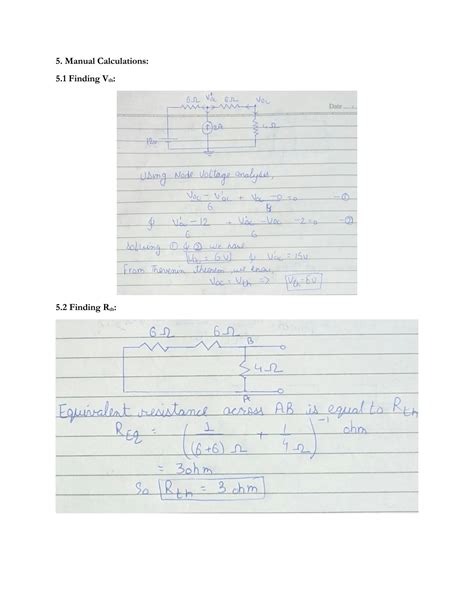 5. Manual Calculations:
5.1 Finding Vth:
6Ω Va' 6Ω Voc
Date
2A
4Ω
12v
Using Node Voltage analysis,
Voc - Va' + Voc - 0 = 0 - ①
6 4
& Va' - 12 + Va' - Voc - 2 = 0 - ②
6 6
Solving ① & ② we have
Voc = 6V & Va' = 15V
From Thevenin theorem we know,
Voc = Vth => Vth = 6V
5.2 Finding Rth:
6Ω 6Ω
B
4Ω
A
Equivalent resistance across AB is equal to Rth
REq = (1/(6+6)Ω + 1/4Ω)^-1 ohm
= 3ohm
So Rth = 3 ohm